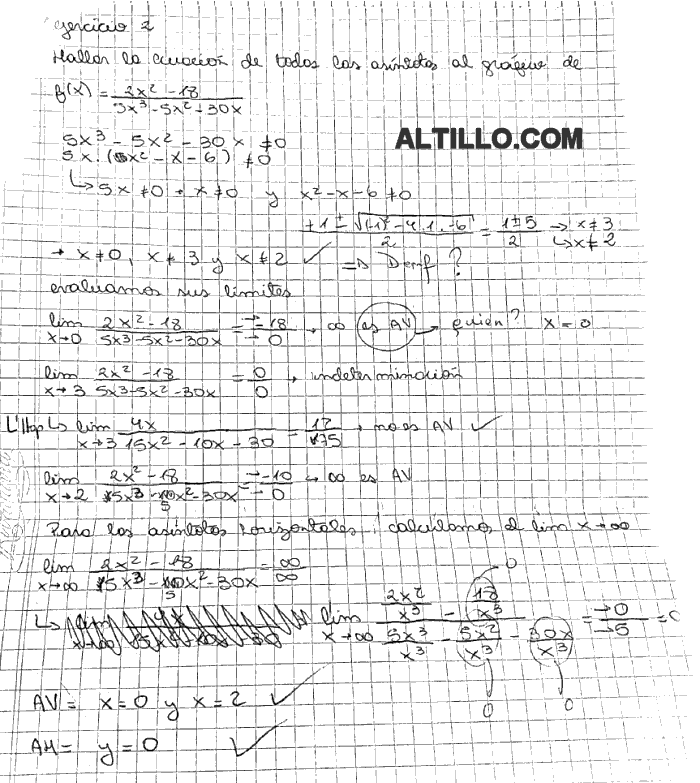 ejercicio 2
Hallar la ecuación de todas las asíntotas al gráfico de
f(x) = (2x² - 18)/(5x³ - 5x² - 30x)
ALTILLO.COM
5x³ - 5x² - 30x ≠ 0
5x·(x² - x - 6) ≠ 0
↳ 5x ≠ 0 → x ≠ 0 y x² - x - 6 ≠ 0
(+1 ± √((-1)² - 4.1.-6))/2 = (1±5)/2 → x ≠ 3
↳ x ≠ 2
→ x ≠ 0, x ≠ 3 y x ≠ 2 ✓ ⇒ Dom f ?
evaluamos sus límites
lim x→0 (2x² - 18)/(5x³ - 5x² - 30x) = (→ -18)/(→ 0) → ∞ es AV → quién? x = 0
lim x→3 (2x² - 18)/(5x³ - 5x² - 30x) = 0/0 → indeterminación
L'Hop ↳ lim x→3 4x/(15x² - 10x - 30) = 12/75 → no es AV ✓
lim x→2 (2x² - 18)/(5x³ - 5x² - 30x) = (→ -10)/(→ 0) ↳ ∞ es AV
Para las asíntotas horizontales, calculamos el lim x→∞
lim x→∞ (2x² - 18)/(5x³ - 5x² - 30x) = ∞/∞
lim x→∞ (2x²/x³ - 18/x³)/(5x³/x³ - 5x²/x³ - 30x/x³) = (→ 0)/(→ 5) = 0
0
0 0
AV = x = 0 y x = 2 ✓
AH = y = 0 ✓